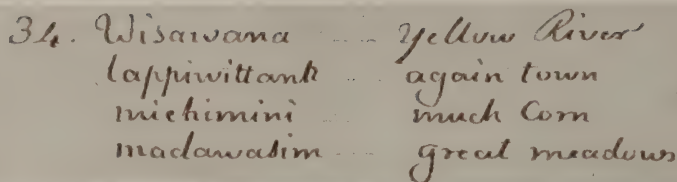 34. Wisawana .... Yellow River
lappiwittank .. again town
michimini .... much Corn
madawasim ... great meadows